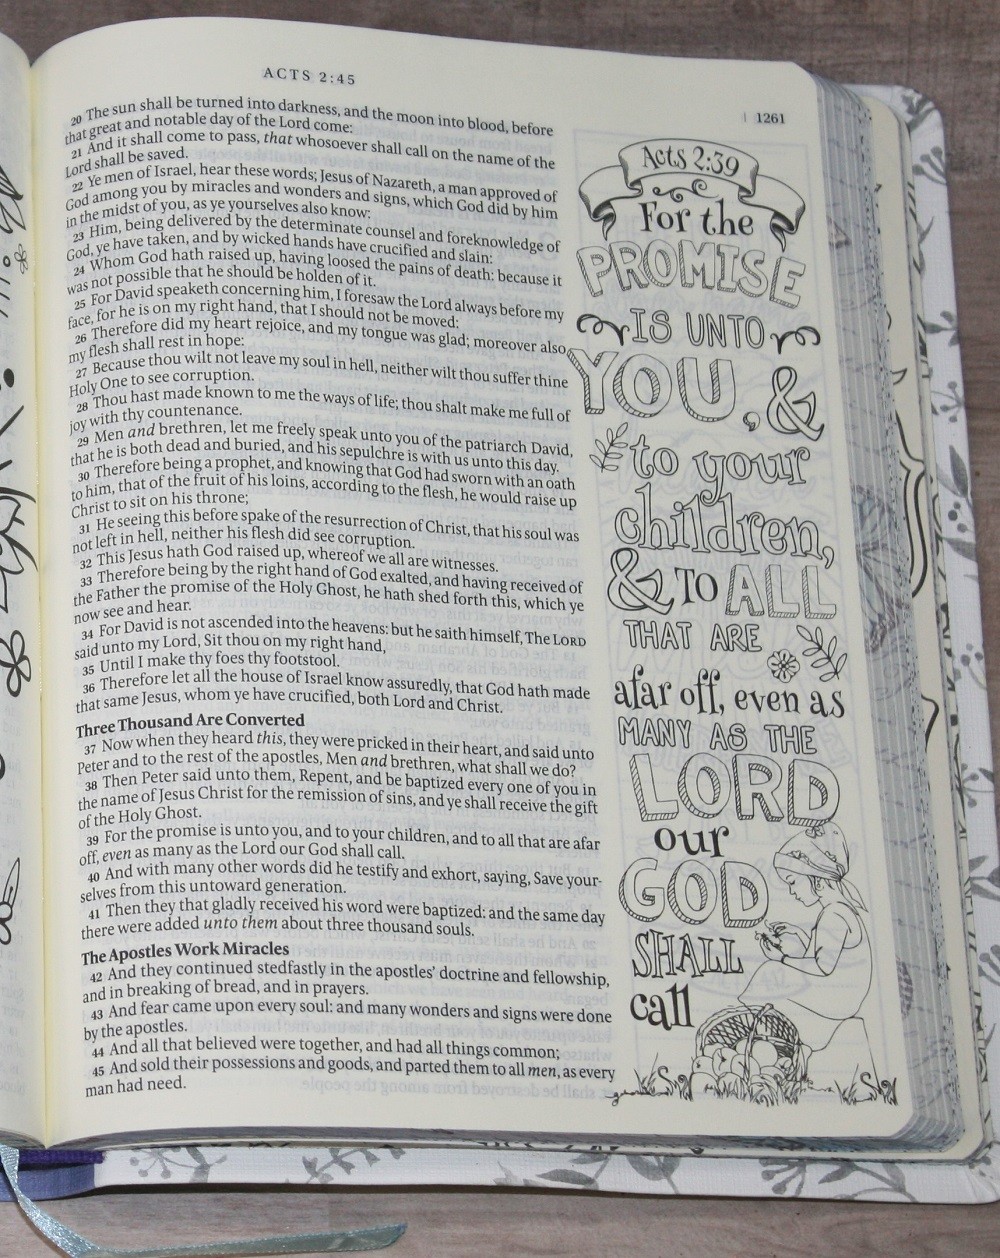 ACTS 2:45
1261
20 The sun shall be turned into darkness, and the moon into blood, before
that great and notable day of the Lord come:
21 And it shall come to pass, that whosoever shall call on the name of the
Lord shall be saved.
22 Ye men of Israel, hear these words; Jesus of Nazareth, a man approved of
God among you by miracles and wonders and signs, which God did by him
in the midst of you, as ye yourselves also know:
23 Him, being delivered by the determinate counsel and foreknowledge of
God, ye have taken, and by wicked hands have crucified and slain:
24 Whom God hath raised up, having loosed the pains of death: because it
was not possible that he should be holden of it.
25 For David speaketh concerning him, I foresaw the Lord always before my
face, for he is on my right hand, that I should not be moved:
26 Therefore did my heart rejoice, and my tongue was glad; moreover also
my flesh shall rest in hope:
27 Because thou wilt not leave my soul in hell, neither wilt thou suffer thine
Holy One to see corruption.
28 Thou hast made known to me the ways of life; thou shalt make me full of
joy with thy countenance.
29 Men and brethren, let me freely speak unto you of the patriarch David,
that he is both dead and buried, and his sepulchre is with us unto this day.
30 Therefore being a prophet, and knowing that God had sworn with an oath
to him, that of the fruit of his loins, according to the flesh, he would raise up
Christ to sit on his throne;
31 He seeing this before spake of the resurrection of Christ, that his soul was
not left in hell, neither his flesh did see corruption.
32 This Jesus hath God raised up, whereof we all are witnesses.
33 Therefore being by the right hand of God exalted, and having received of
the Father the promise of the Holy Ghost, he hath shed forth this, which ye
now see and hear.
34 For David is not ascended into the heavens: but he saith himself, The LORD
said unto my Lord, Sit thou on my right hand,
35 Until I make thy foes thy footstool.
36 Therefore let all the house of Israel know assuredly, that God hath made
that same Jesus, whom ye have crucified, both Lord and Christ.
Three Thousand Are Converted
37 Now when they heard this, they were pricked in their heart, and said unto
Peter and to the rest of the apostles, Men and brethren, what shall we do?
38 Then Peter said unto them, Repent, and be baptized every one of you in
the name of Jesus Christ for the remission of sins, and ye shall receive the gift
of the Holy Ghost.
39 For the promise is unto you, and to your children, and to all that are afar
off, even as many as the Lord our God shall call.
40 And with many other words did he testify and exhort, saying, Save your-
selves from this untoward generation.
41 Then they that gladly received his word were baptized: and the same day
there were added unto them about three thousand souls.
The Apostles Work Miracles
42 And they continued stedfastly in the apostles' doctrine and fellowship,
and in breaking of bread, and in prayers.
43 And fear came upon every soul: and many wonders and signs were done
by the apostles.
44 And all that believed were together, and had all things common;
45 And sold their possessions and goods, and parted them to all men, as every
man had need.
Acts 2:39
For the
PROMISE
IS UNTO
YOU, &
to your
children,
& TO ALL
THAT ARE
afar off, even as
MANY AS THE
LORD
our
GOD
SHALL
call